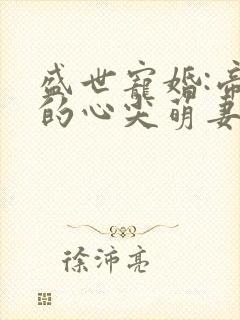 盛世寵婚:帝
的心尖萌妻
徐沛亮